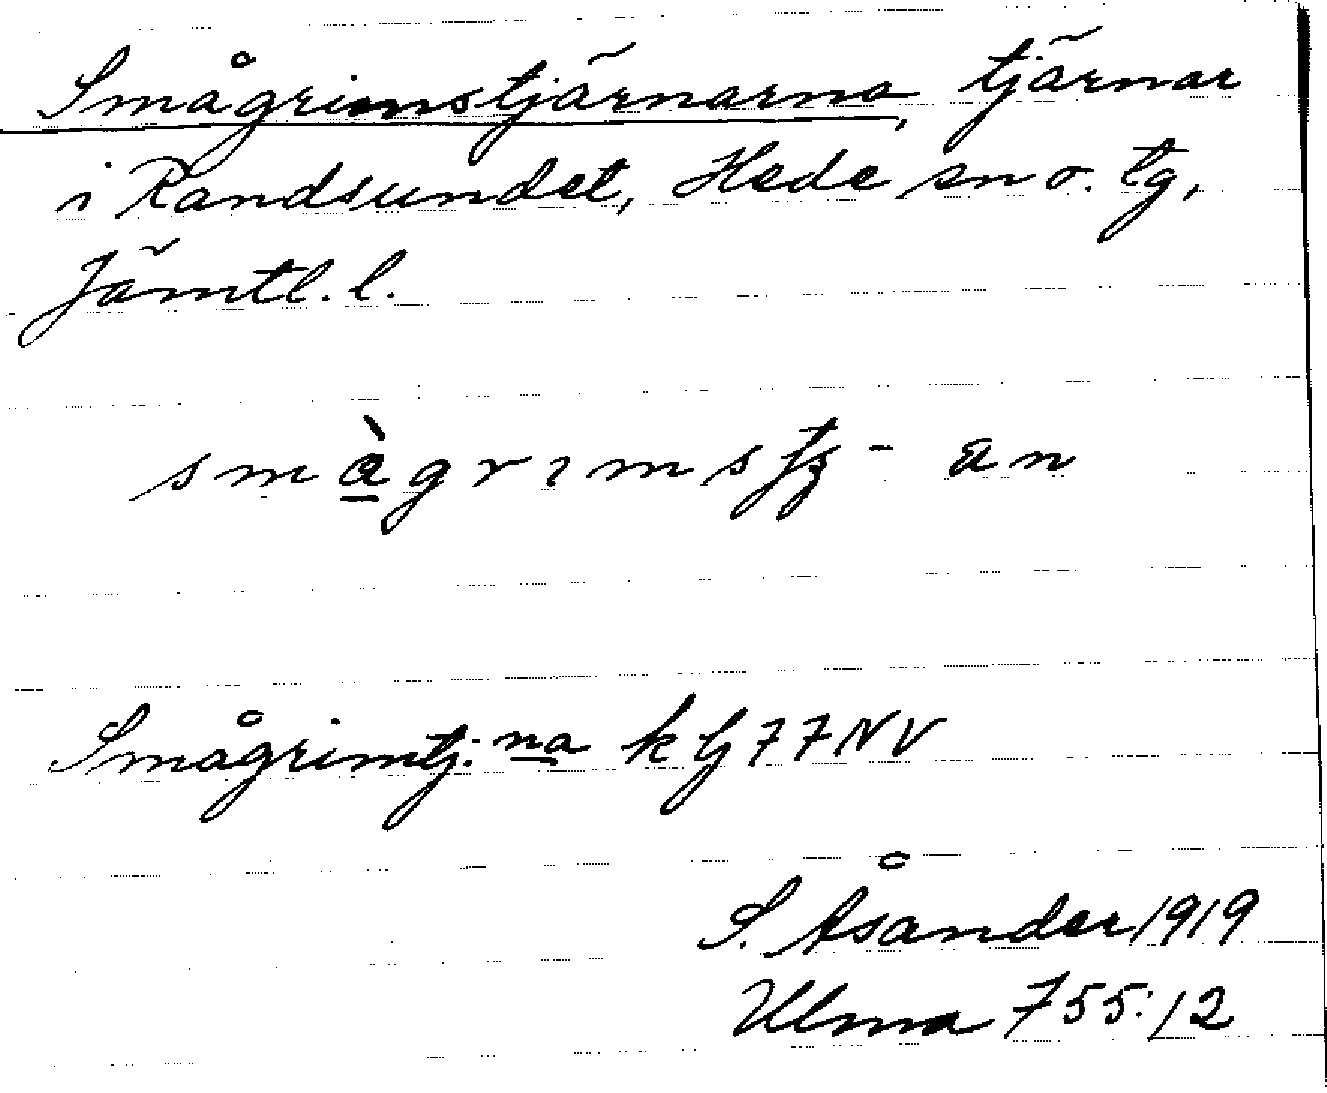 Smågrimstjärnarna, tjärnar
i Randsundet, Hede sn o. tg,
Jämtl. l.
smàgrımsʈʂ - an
Smågrimtj:na kbl 77NV
S. Åsander 1919
Ulma 755:12